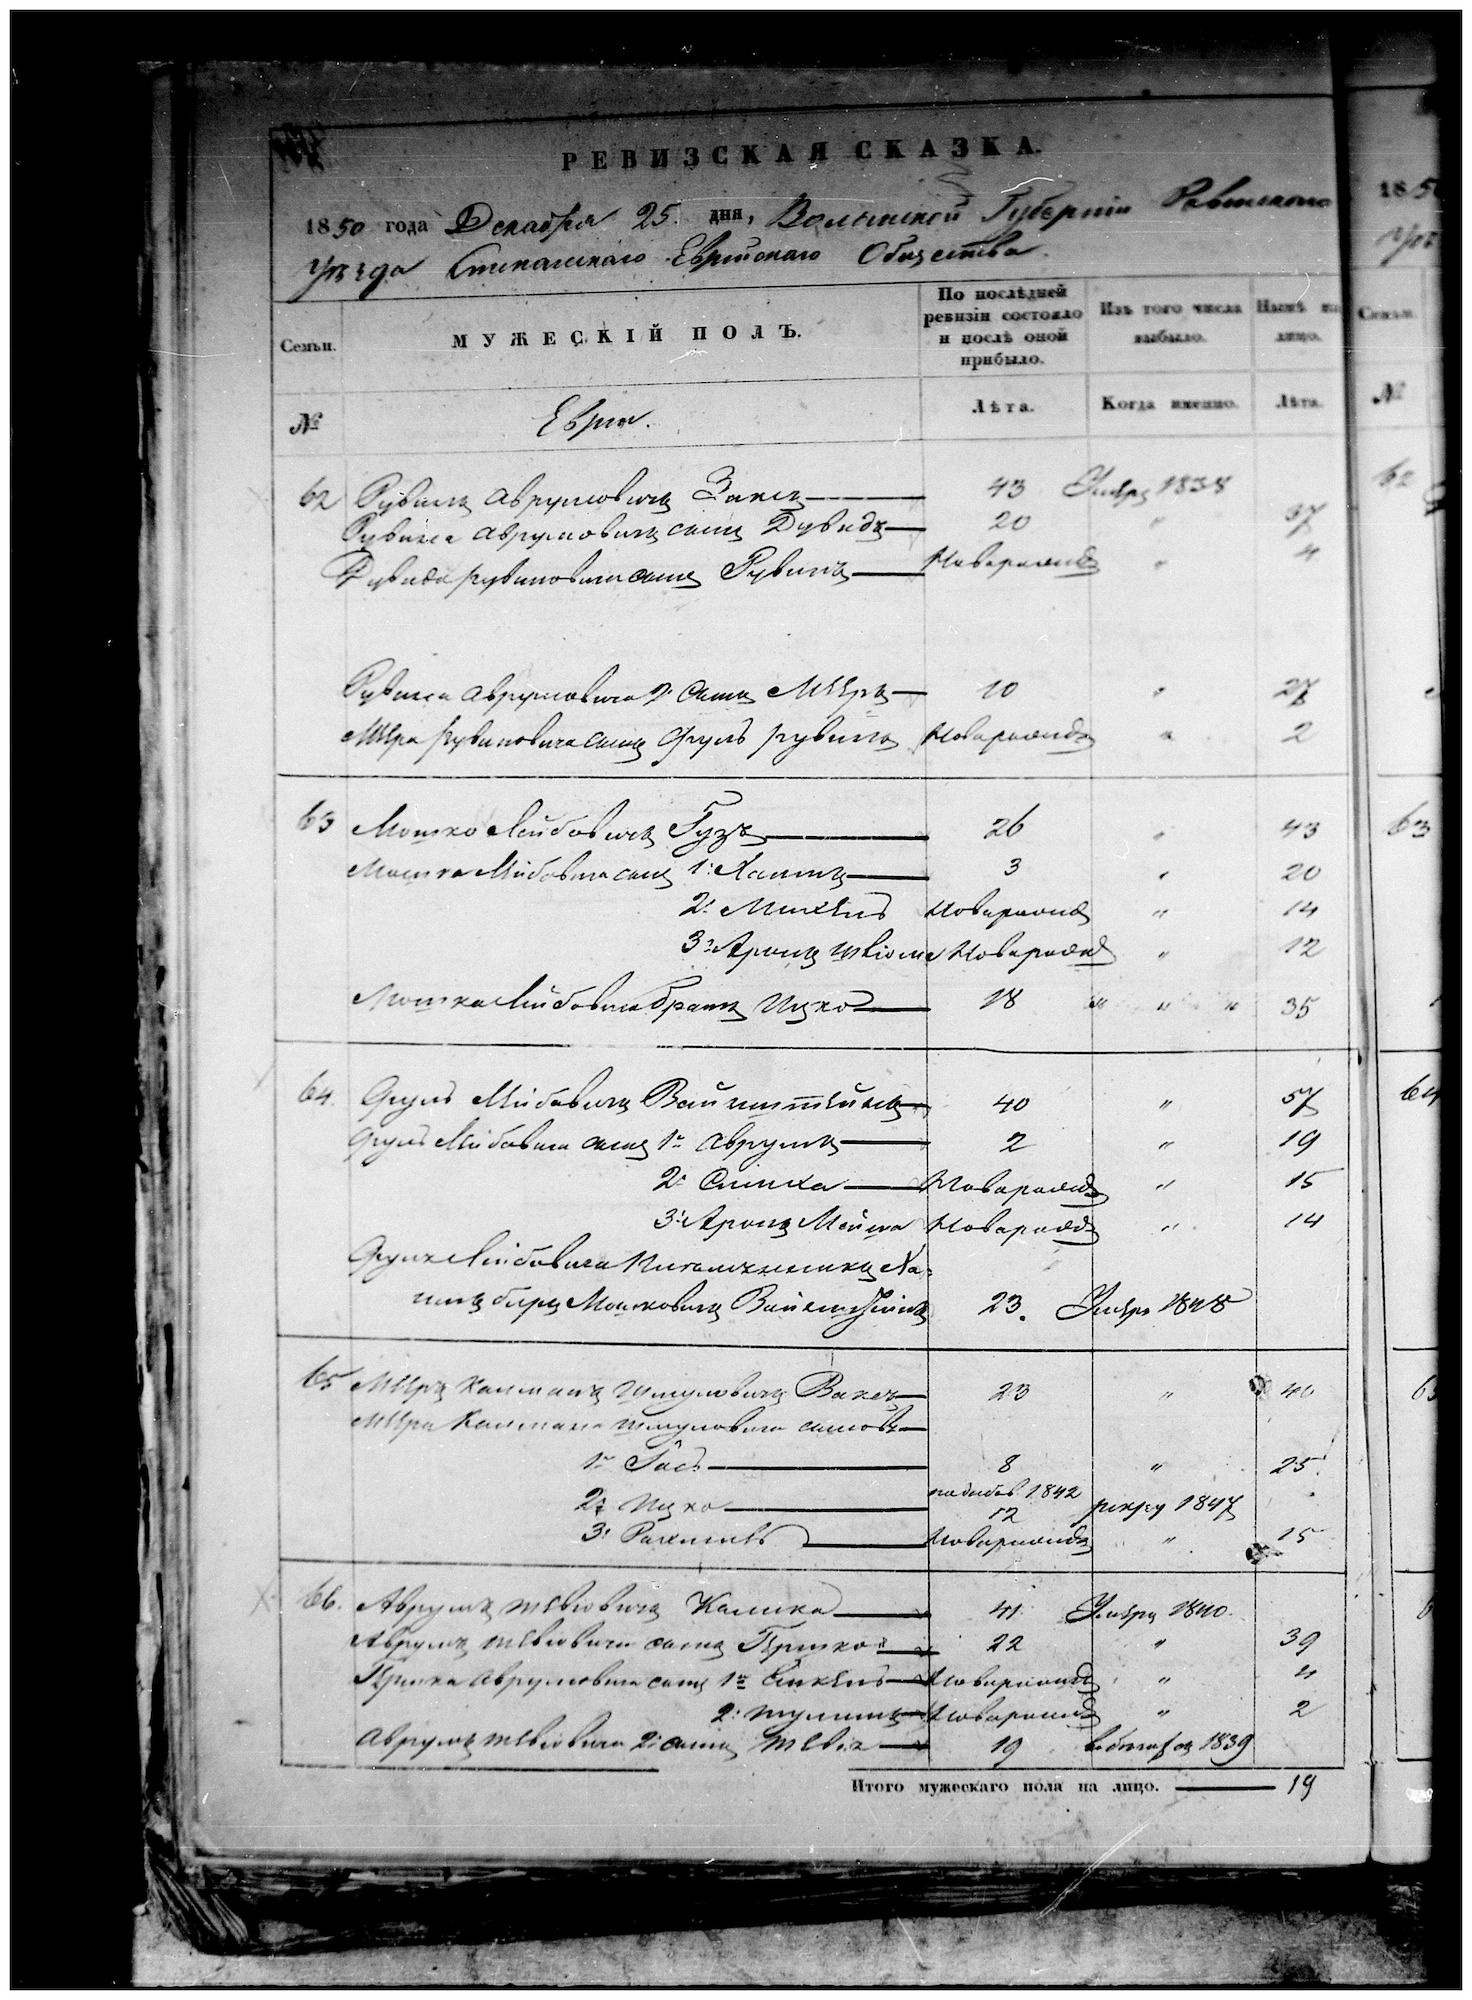 РЕВИЗСКАЯ СКАЗКА.
1850 года Декабря 25 дня, Волынской Губернии Ровенского
уѣзда Степанского Еврейского Общества.
Семьи.
МУЖЕСКІЙ ПОЛЪ.
По послѣдней ревизіи состояло и послѣ оной прибыло.
Изъ того числа выбыло.
Нынѣ на лицо.
№
Евреи.
Лѣта.
Когда именно.
Лѣта.
62 Рувинъ Аврумовичъ Заксъ 43 Умеръ 1838
Рувина Аврумовича сынъ Дувидъ 20 " 37
Дувида Рувиновича сынъ Рувинъ Новорожденъ " 4
Рувина Аврумовича 2й сынъ Мееръ 10 " 27
Меера Рувиновича сынъ Сруль Рувинъ Новорожденъ " 2
63 Мошко Лейбовичъ Гузъ 26 " 43
Мошка Лейбовича сынъ 1й Хаимъ 3 " 20
2й Михель Новорожденъ " 14
3й Аронъ Новорожденъ " 12
Мошка Лейбовича братъ Ицко 18 " " " 35
64 Сруль Лейбовичъ Вайнштейнъ 40 " 57
Сруля Лейбовича сынъ 1й Аврумъ 2 " 19
2й Симха Новорожденъ " 15
3й Аронъ Мойша Новорожденъ " 14
Сруля Лейбовича Племянникъ Ха-
имъ Беръ Мошковичъ Вайнштейнъ 23. Умеръ 1848
65 Мееръ Калманъ Шмуловичъ Ваксъ 23 " 40
Меера Калмана Шмуловича сыновья
1й 8 " 25
1842
2й Ицко 12 рекрут 1847
3й Рахмиль Новорожденъ " 15
66. Аврумъ Тевіовичъ Калика 41 Умеръ 1840
Аврума Тевіовича сынъ Гершко 22 " 39
Гершка Аврумовича сынъ 1й Новорожденъ " 4
2й Шулимъ Новорожденъ " 2
Аврума Тевіовича 2й сынъ 19 1839
Итого мужескаго пола на лицо. 19
1850
Уѣз
Семьи.
№
62
63
64